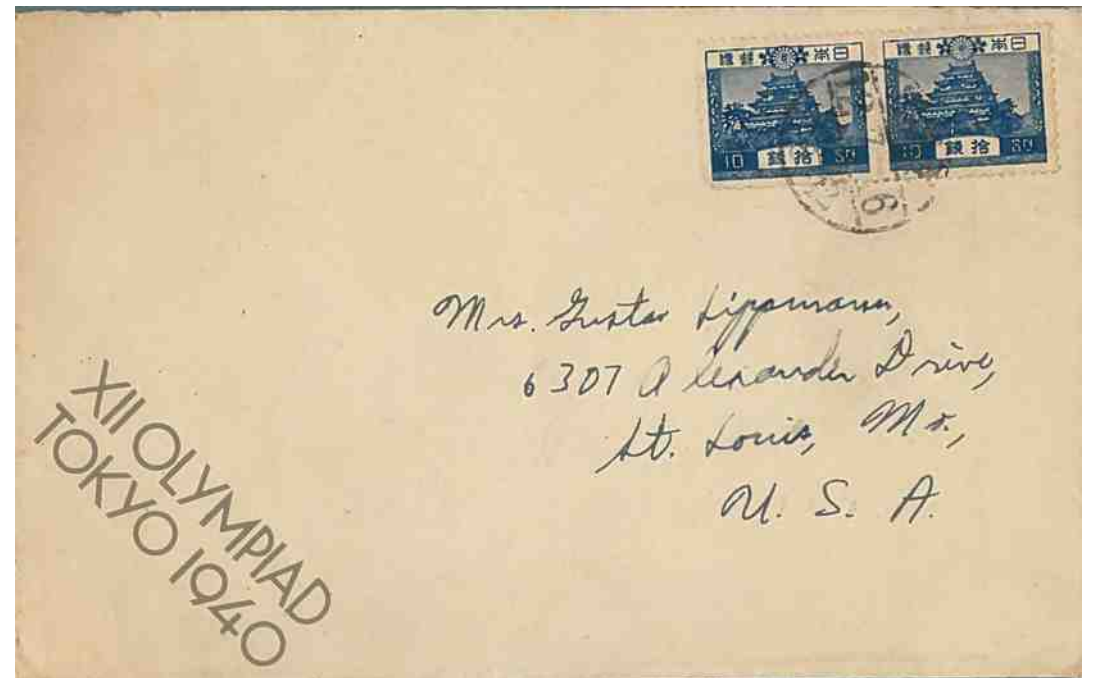 日本郵便
10 拾錢 SN
日本郵便
10 拾錢 SN
6
Mrs. Gustav Lippmann,
6307 Alexander Drive,
St. Louis, Mo.,
U. S. A.
XII OLYMPIAD
TOKYO 1940